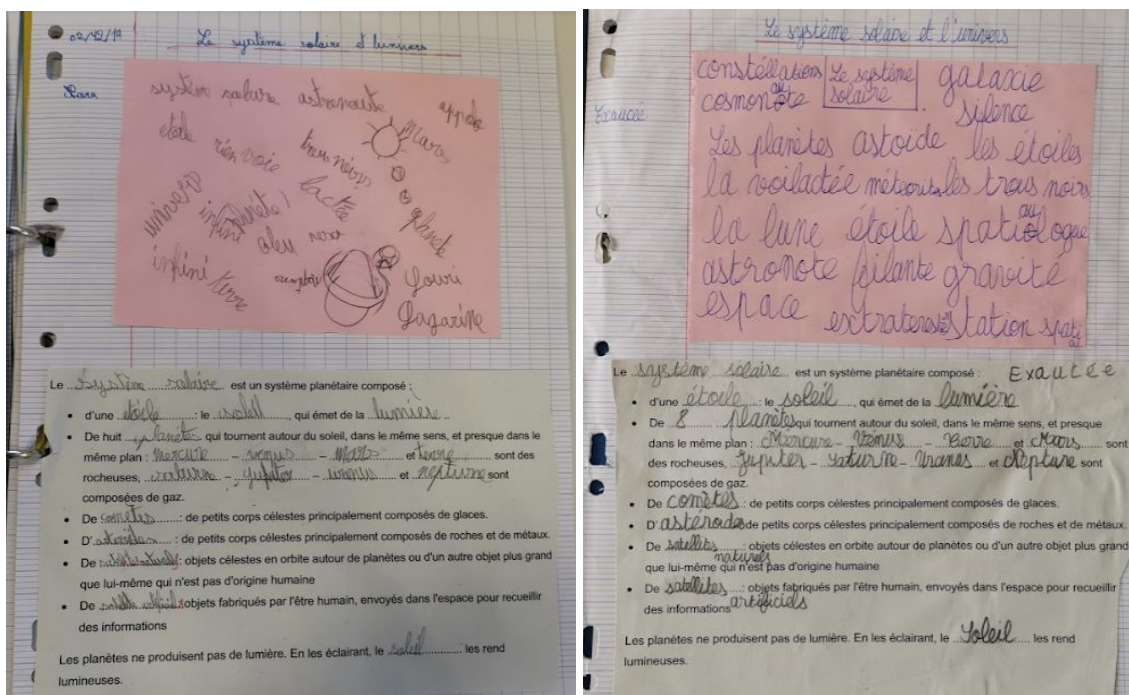 02/12/19
Le système solaire et l'univers
systém solaire astronaute appolo
étoile rien voie trous noirs Mars
univers infini planète lactée planète
infini terre Youri
Gagarine
Le système solaire est un système planétaire composé :
• d'une étoile : le soleil, qui émet de la lumière
• De huit planètes qui tournent autour du soleil, dans le même sens, et presque dans le
même plan : mercure - venus - Mars et terre sont des
rocheuses, saturne - jupiter - uranus et neptune sont
composées de gaz.
• De comètes : de petits corps célestes principalement composés de glaces.
• D' : de petits corps célestes principalement composés de roches et de métaux.
• De : objets célestes en orbite autour de planètes ou d'un autre objet plus grand
que lui-même qui n'est pas d'origine humaine
• De : objets fabriqués par l'être humain, envoyés dans l'espace pour recueillir
des informations
Les planètes ne produisent pas de lumière. En les éclairant, le soleil les rend
lumineuses.
Le système solaire et l'univers
Exaucée
constéllations Le système solaire galaxie
cosmonaute silence
Les planètes astoïde les étoiles
la voilactée météorits les trous noirs
la lune étoile spatiologue
astronote filante gravité
espace station spatial
Le système solaire est un système planétaire composé : Exaucée
• d'une étoile : le soleil, qui émet de la lumière
• De 8 planètes qui tournent autour du soleil, dans le même sens, et presque
dans le même plan : Mercure - Vénus - Terre et Mars sont
des rocheuses, Jupiter - Saturne - Uranas et Neptune sont
composées de gaz.
• De comètes : de petits corps célestes principalement composés de glaces.
• D'asteroides de petits corps célestes principalement composés de roches et de métaux.
• De satellits naturels : objets célestes en orbite autour de planètes ou d'un autre objet plus grand
que lui-même qui n'est pas d'origine humaine
• De satellètes artificiels : objets fabriqués par l'être humain, envoyés dans l'espace pour recueillir
des informations
Les planètes ne produisent pas de lumière. En les éclairant, le Soleil les rend
lumineuses.